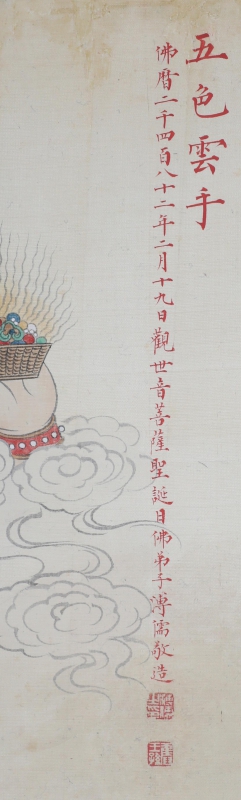 五色雲手
佛曆二千四百八十二年二月十九日觀世音菩薩聖誕日佛弟子溥儒敬造